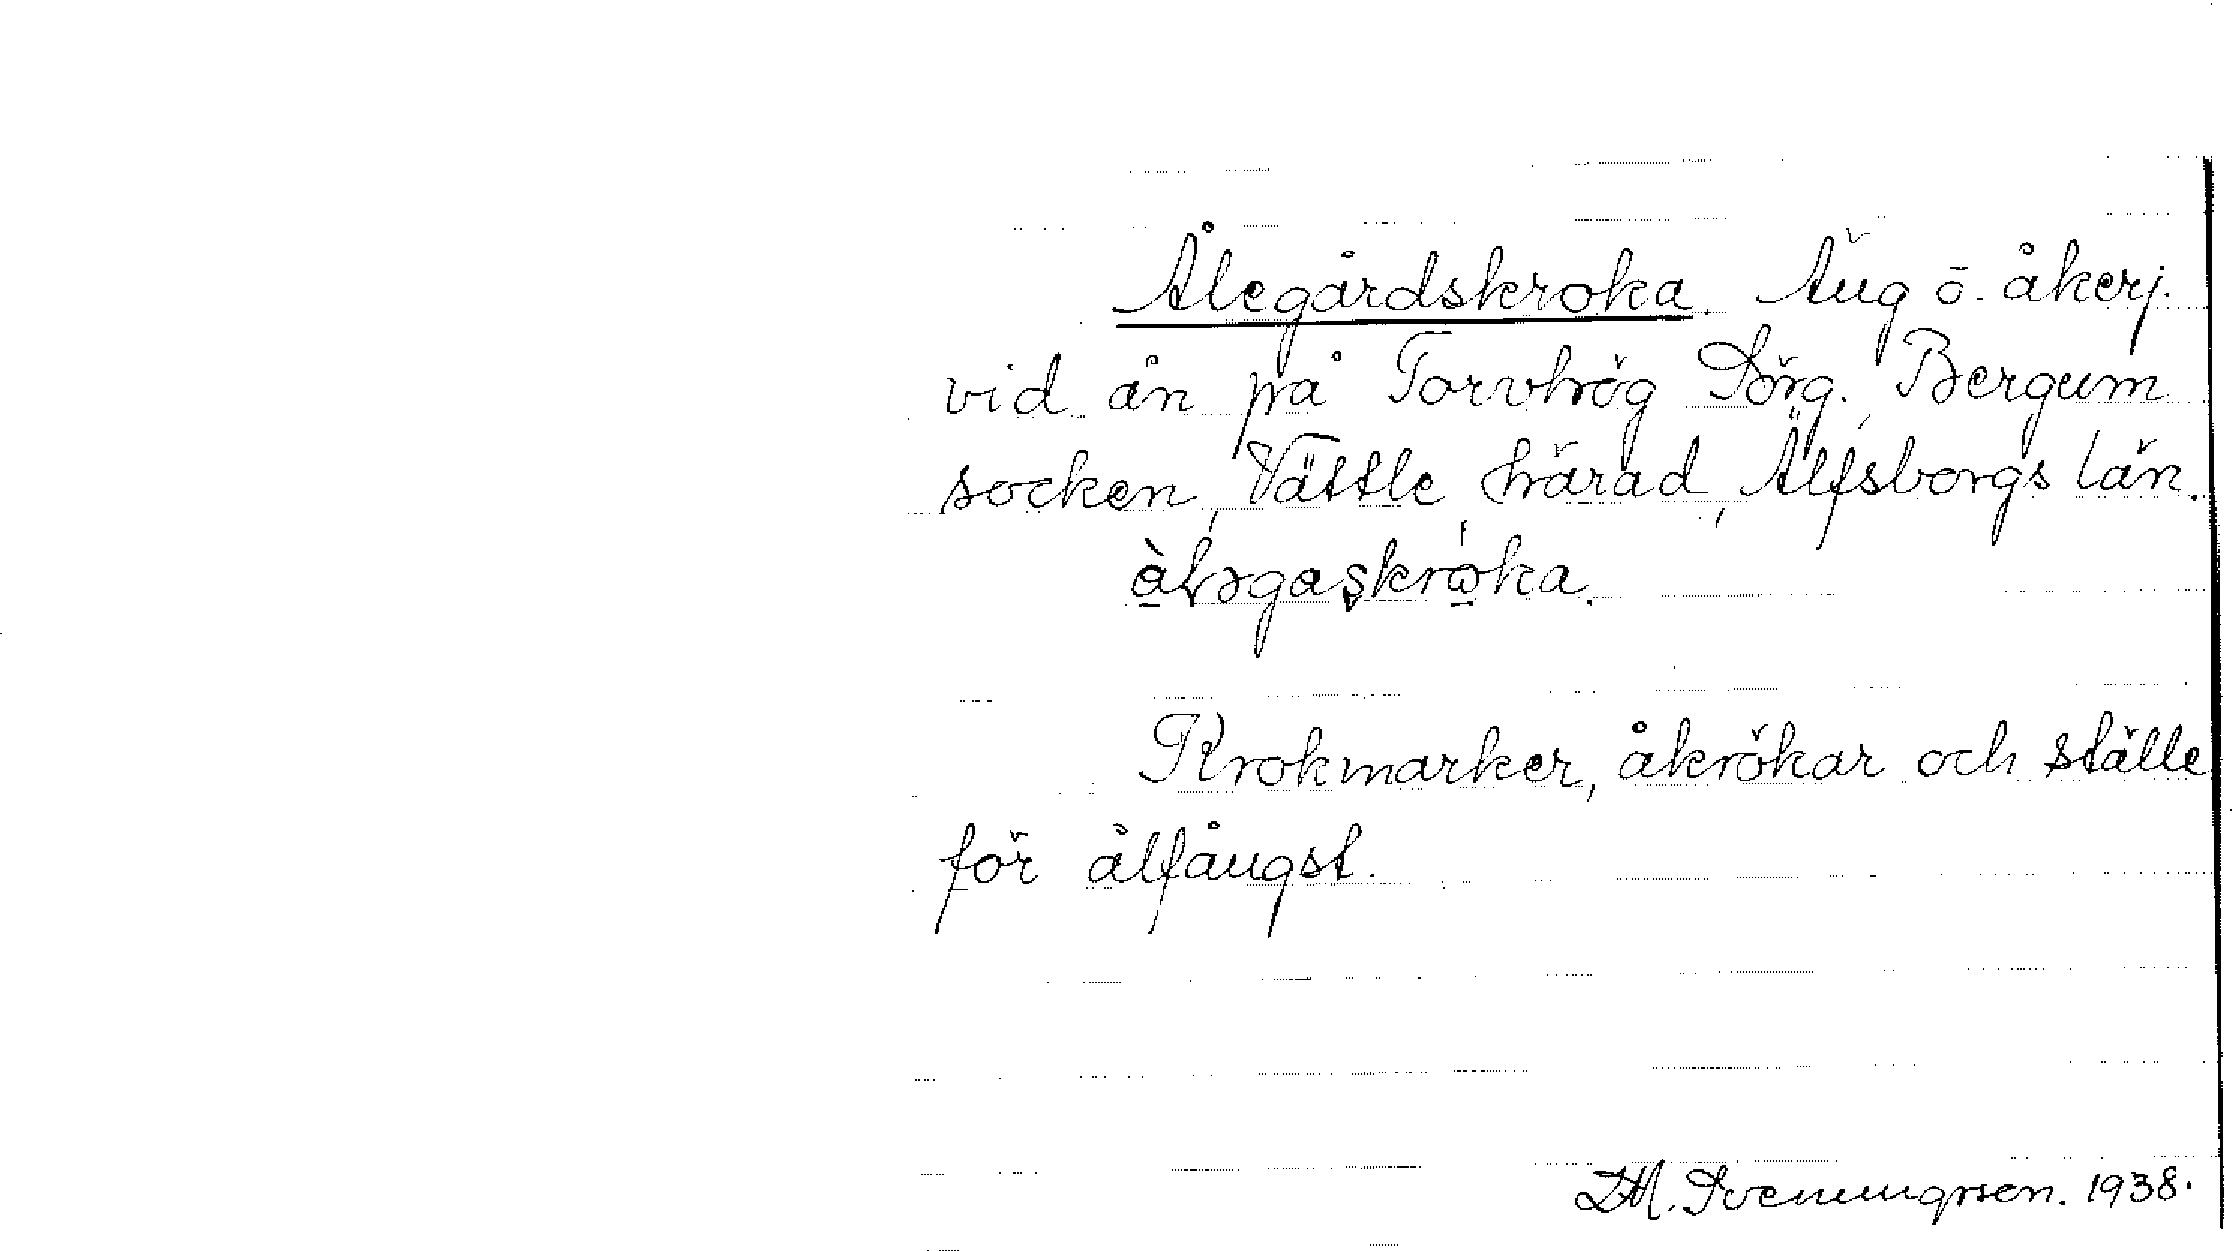 Ålegårdskroka. Äng o. åkerj.
vid ån på Torvhög Sörg., Bergum
socken, Vättle härad, Älfsborgs län.
Krokmarker, åkrökar och ställe
för ålfångst.
D.M. Svenningsson. 1938.